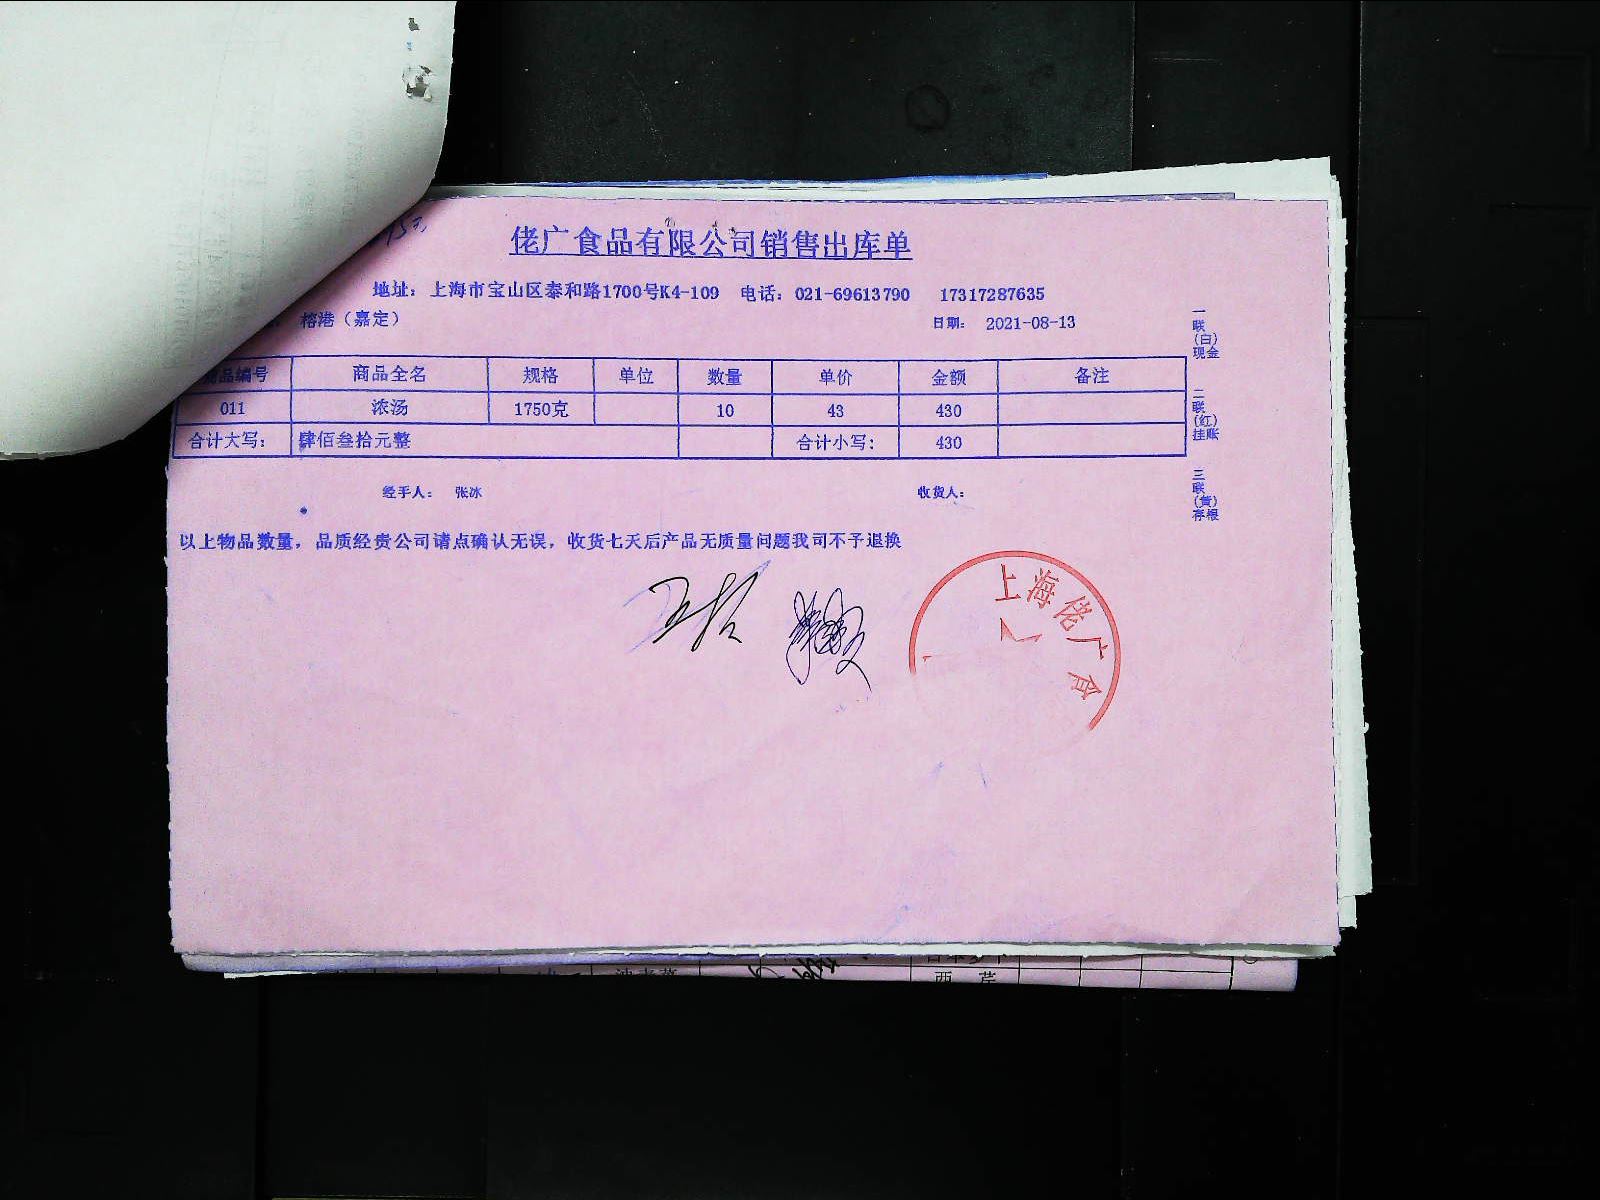 佬广食品有限公司销售出库单
地址：上海市宝山区泰和路1700号K4-109 电话：021-69613790 17317287635
榕港（嘉定） 日期： 2021-08-13
品编号 商品全名 规格 单位 数量 单价 金额 备注
011 浓汤 1750克 10 43 430
合计大写： 肆佰叁拾元整 合计小写： 430
经手人： 张冰 收货人：
以上物品数量，品质经贵公司请点确认无误，收货七天后产品无质量问题我司不予退换
一联(白)现金
二联(红)挂账
三联(黄)存根
上海佬广食
西 芹